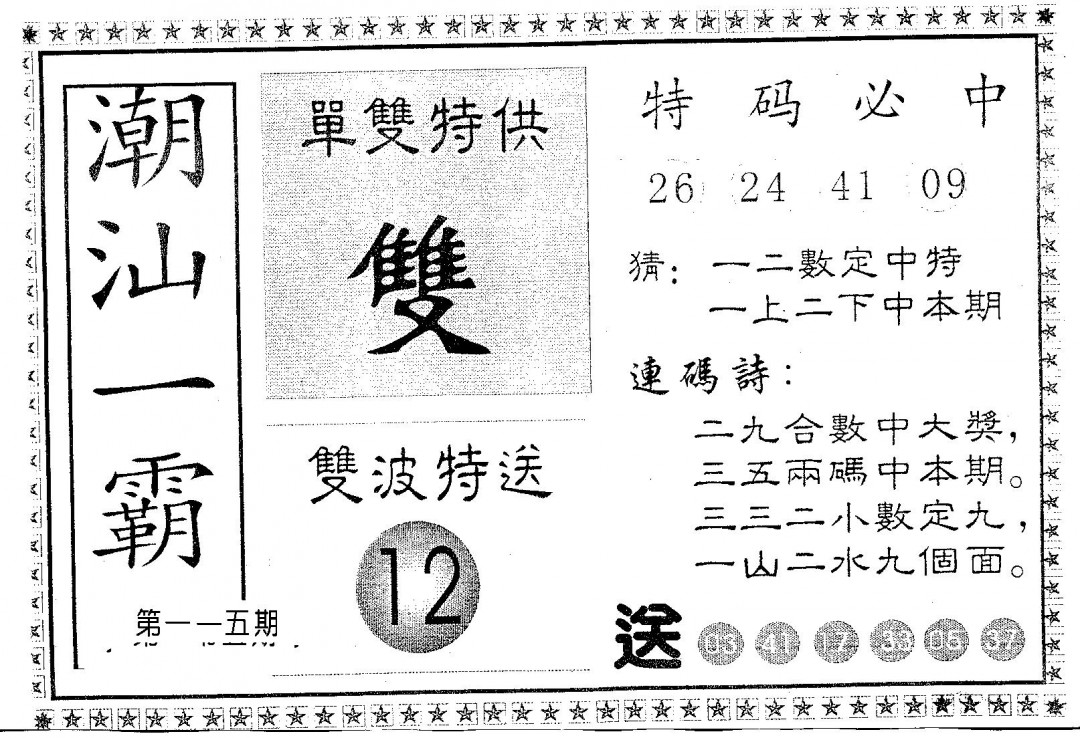 潮汕一霸
第一一五期
單雙特供
雙
雙波特送
12
特码必中
26 24 41 09
猜：一二數定中特
一上二下中本期
連碼詩：
二九合數中大獎，
三五兩碼中本期。
三三二小數定九，
一山二水九個面。
送 03 41 17 33 05 37